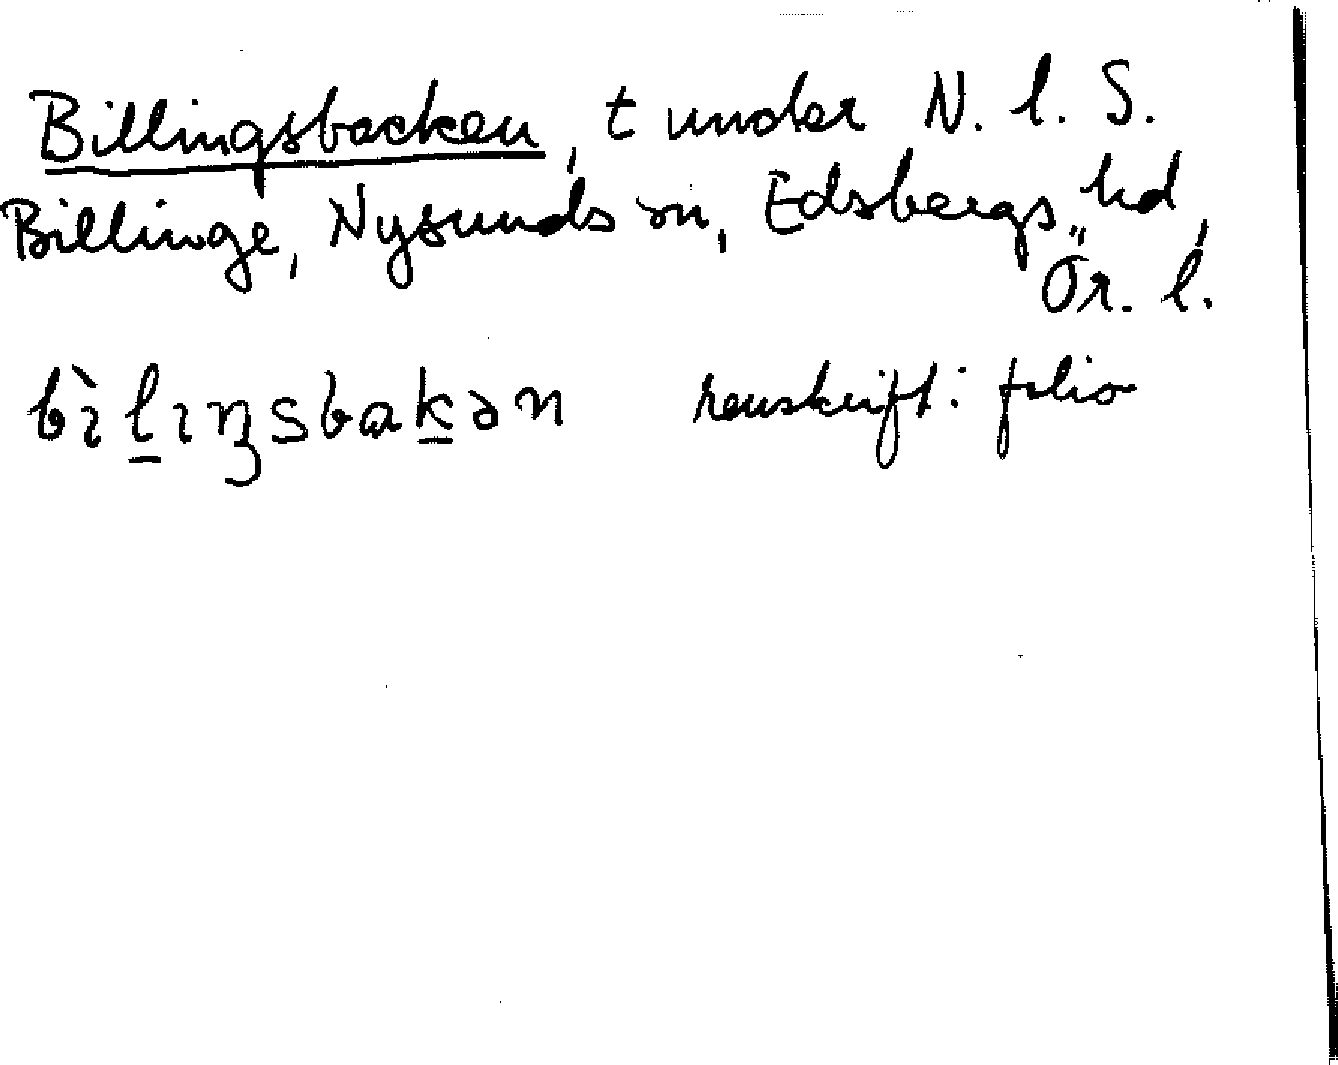 Billingsbacken, t under N. l. S.
Billinge, Nysunds sn, Edsbergs hd,
Ör. l.
bìlıŋsbakən renskrift: folio